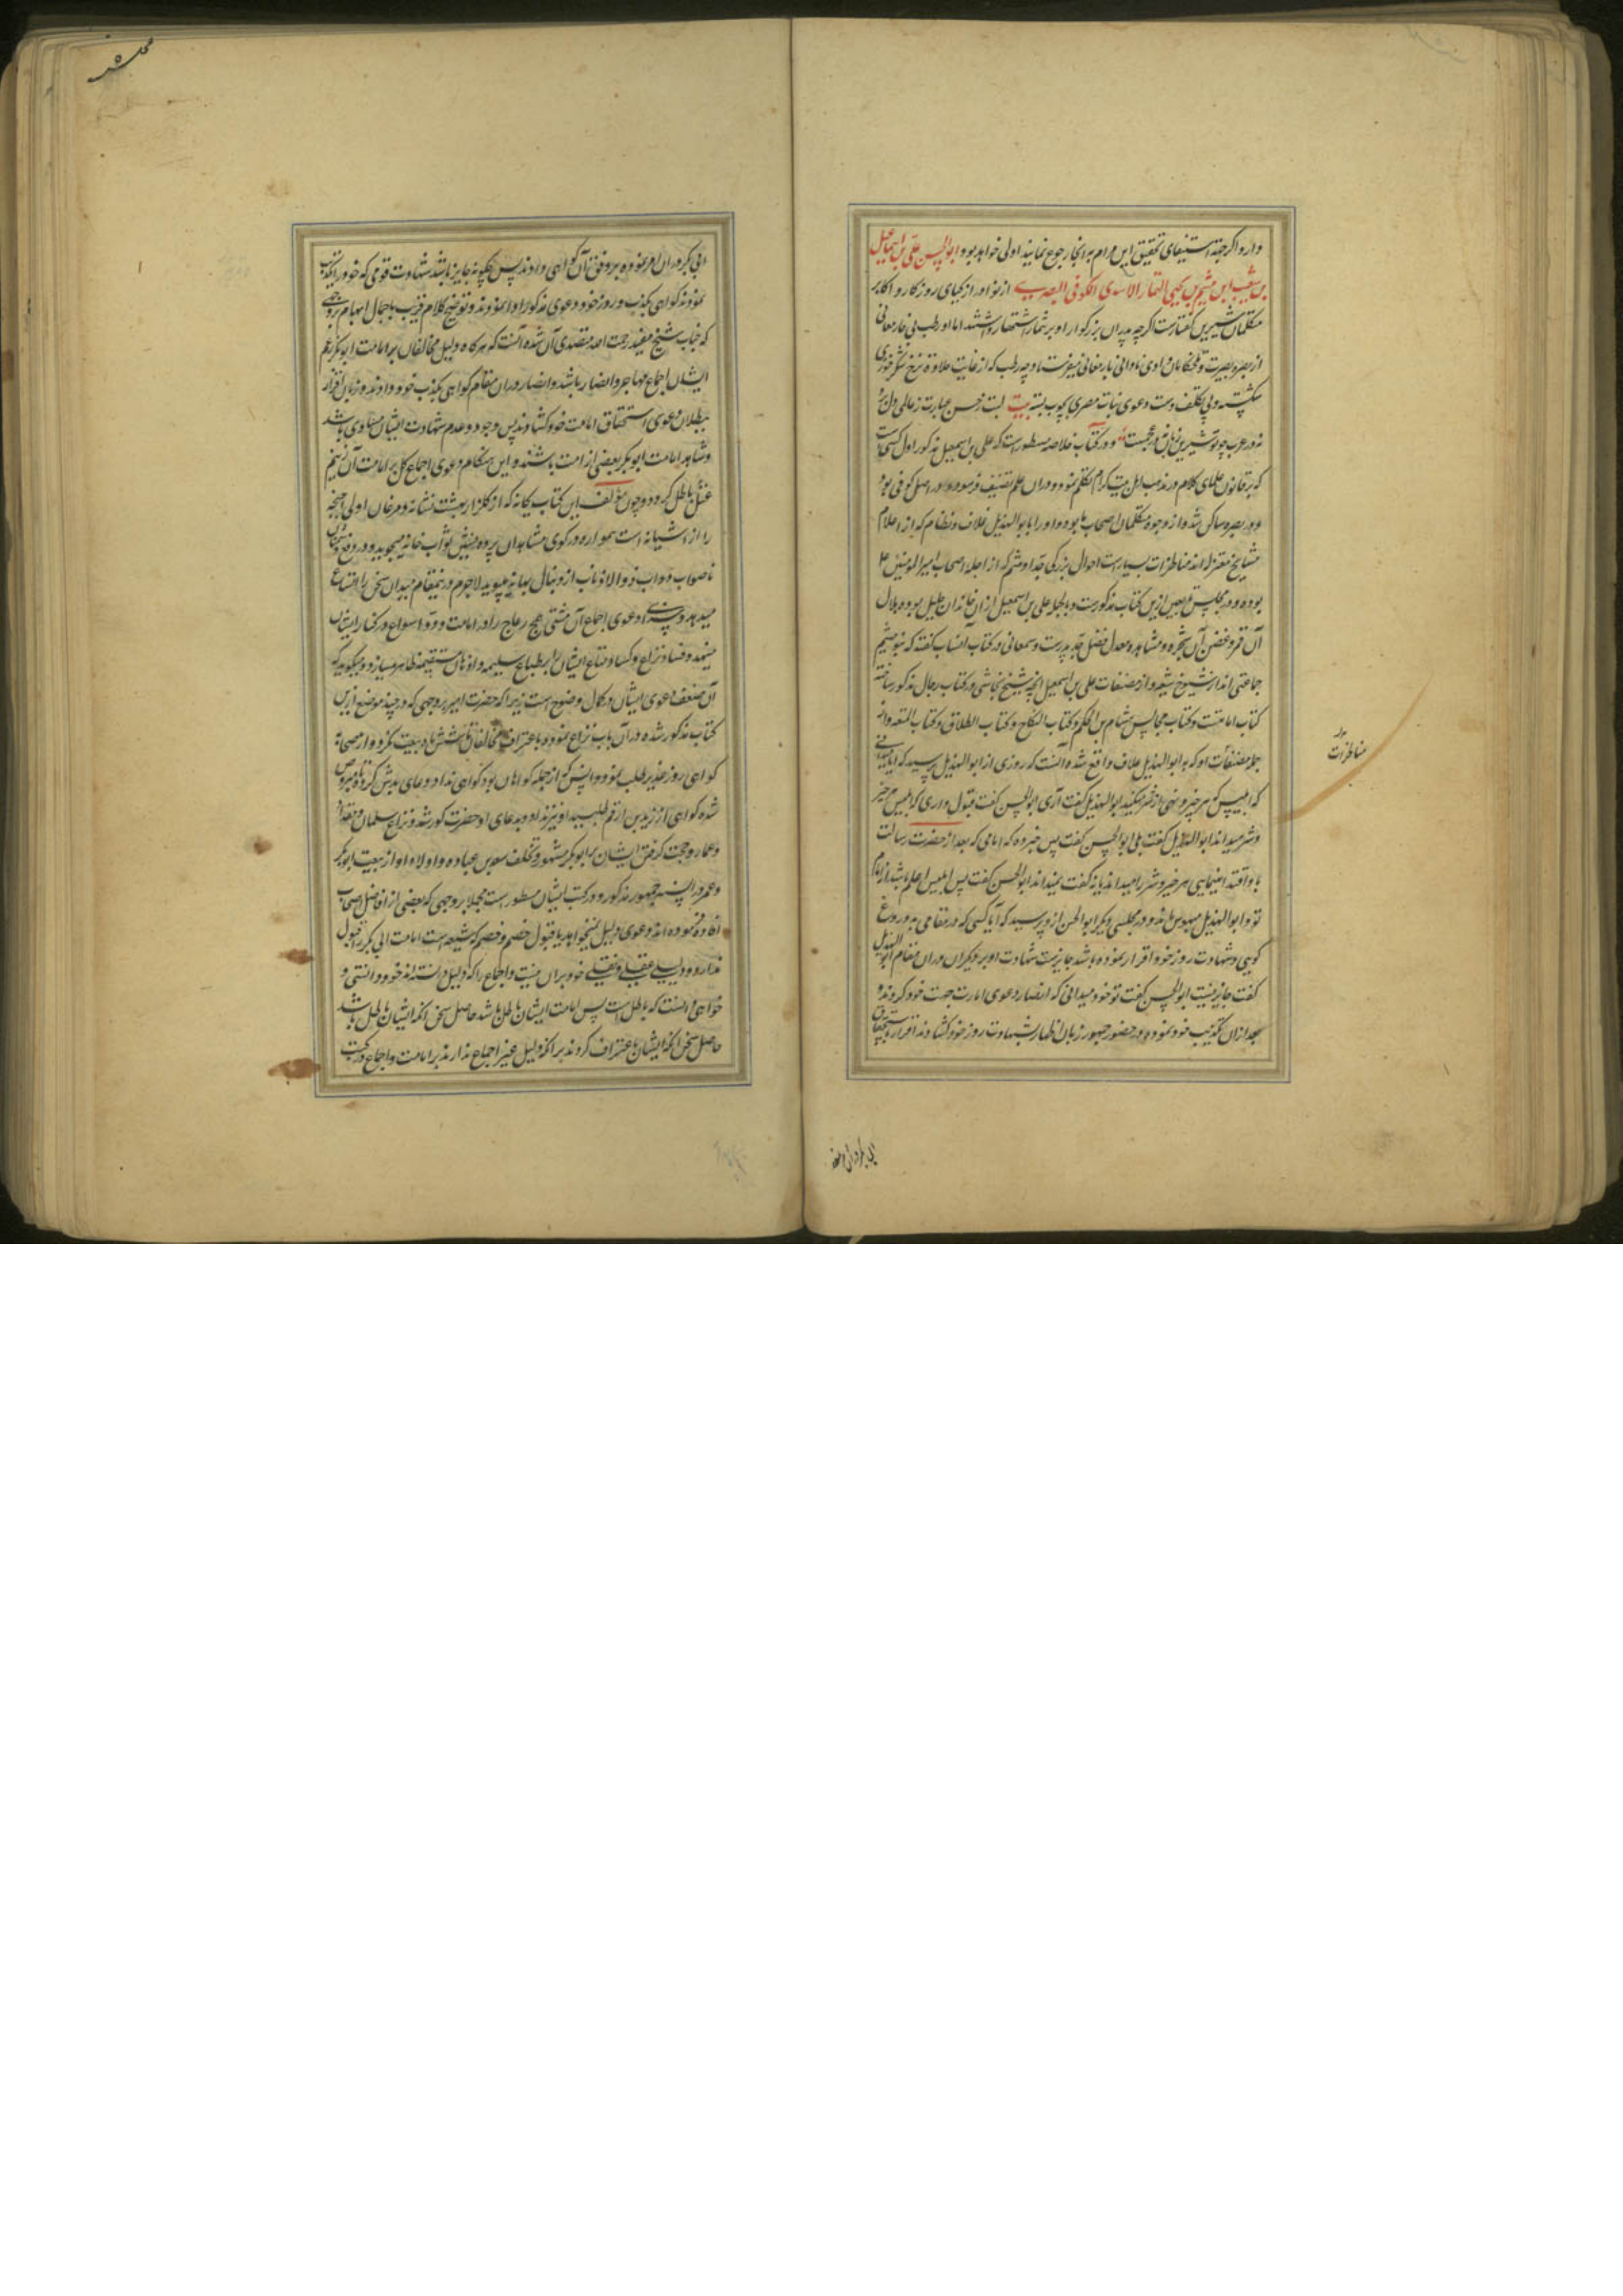 دارد اگر جهة استیفای تحقیق این مرام به انجا رجوع نمایند اولی خواهد بود ابو الحسن علی بن اسماعیل
بن شعیب بن میثم بن یحیی التمار الاسدی الکوفی البصری از نوادر ازکیای روزگار و اکابر
متکلمان شیرین گفتارست اگرچه پدران بزرگوار او بر شمار اشتهار داشتند اما او رطب بی خار معانی
از بصره بصیرت و نخلستان وادی نادانی بارمغانی میفرستاد چه رطب که از غایت حلاوة نرخ شکر خوزی
شکسته و بی تکلف دست دعوی نبات مصری بچوب بسته بیت بست حسن عبارت ز عالمی دل
نه در عرب چو تو شیرین زبان نه در عجمست و در کتاب خلاصه مسطور است که علی بن اسمعیل مذکور اول کسیست
که بر قانون علمای کلام در مذهب اهل بیت کرام تکلم نمود و در ان علم تصنیف فرمود و او در اصل کوفی بود
و در بصره ساکن شد و از وجوه متکلمان اصحاب ما بود و او را با ابو الهذیل علاف و نظام که از اعلام
مشایخ معتزله اند مناظرات بسیارست احوال بزرگی جد او میثم که از اجله اصحاب امیر المؤمنین ع
بوده در مجلس از این کتاب مذکورست و بالجمله علی بن اسمعیل از ان خاندان جلیل بوده و هلال
آن قمر و غصن آن شجره و مشاهده معدل فضل جد و پدرست و سمعانی در کتاب انساب گفته که بنو میثم
جماعتی اند از شیوخ شیعه و از مصنفات علی بن اسمعیل انچه شیخ نجاشی در کتاب رجال مذکور ساخته
کتاب امامتست و کتاب مجالس هشام بن الحکم و کتاب النکاح و کتاب الطلاق و کتاب المتعه و از
جمله که به ابو الهذیل علاف واقع شده آنست که روزی از ابو الهذیل پرسید که ایا میدانی
که ابلیس امر بخیر و نهی از شر میکند ابو الهذیل گفت آری ابو الحسن گفت قبول داری که ابلیس همه خیر
و شر میداند ابو الهذیل گفت بلی ابو الحسن گفت پس خبر ده که امامی که بعد از حضرت رسالت
باو اقتدا مینمایی همه خیر و شر را میداند یا نه گفت نمیداند ابو الحسن گفت پس ابلیس اعلم باشد از امام
تو و ابو الهذیل مبهوس ماند و در مجلسی دیگر ابو الحسن از و پرسید که آیا کسی که در مقامی بدروغ
گویی و شهادت زور خود اقرار نموده باشد جایزست شهادت او بر دیگران در ان مقام ابو الهذیل
گفت جایز نیست ابو الحسن گفت تو خود میدانی که انصار دعوی امارت جهت خود کردند و
بعد از ان تکذیب خود نمودند و در حضور جمهور زبان اظهار بشهادت زور خود گشادند و اقرار باستحقاق
مناظرات
ابی بکر در ان امر نموده
ابی بکر در ان امر نموده بر وفق آن گواهی دادند پس چگونه جایز باشد شهادت قومی که خود را تکذیب
نمودند گواهی بکذب و زور خود و دعوی مذکور ادا نمودند و توضیح کلام قریب باجمال ابهام بر وجهی
که جناب شیخ مفید رحمت الله متصدی آن شده آنست که هر گاه دلیل مخالفان بر امامت ابو بکر بزعم
ایشان اجماع مهاجر و انصار باشد و انصار در ان مقام گواهی بکذب خود دادند و زبان اقرار
ببطلان دعوی استحقاق امامت خود گشادند پس وجود و عدم شهادت ایشان مساوی باشد
و شاهد امامت ابو بکر بعضی از امت باشند و این هنگام دعوی اجماع کل بر امامت آن زنیم
عتل باطل گردد و چون مؤلف این کتاب یگانه که از گلزار بهشت نشانه و مرغان اولی اجنحه
را از آشیانه است همواره در کوی مشاهدان پرده نشین ثواب خانه میجوید و در دفع
ناصواب دواب ذو الاذناب از دنبال بهانه میپوید لاجرم در نمقام میدان سخن را اتساع
میدهد و دعوی اجماع آن مشتی همج رعاج را در امامت ود و سواع در کنار ایشان
مینهد و فساد نزاع و کساد متاع ایشان را بر طباع سلیمه و اذهان مستقیمه ظاهر میسازد و میگوید که
آن ضعف دعوی ایشان در کمال وضوح است زیرا که حضرت امیر بر وجهی که در چند موضع ازین
کتاب مذکور شده در آن باب نزاع نموده و باعتراف مخالفان تا شش ماه بیعت نکرد و از صحابة
گواهی روز غدیر طلب نمود و انس که از جمله گواهان بود گواهی نداد و دعای بدش کرد تا مبروص
شد و گواهی از زید بن ارقم طلبید او نیز نداد و بدعای او حضرت کور شد و نزاع سلمان و مقداد
و عمار و حجت گرفتن ایشان بر ابو بکر مشهور و تخلف سعد بن عباده و اولاد او از بیعت ابو بکر
و عمر در السنه جمهور مذکور و در کتب ایشان مسطور است مجملا بر وجهی که بعضی از افاضل اصحاب
افاده نموده اند دعوی دلیل میخواهد یا قبول خصم و خصم که شیعه است امامت ابی بکر را قبول
ندارد و دلیلی عقلی و نقلی خود بران نیست و اجماع را که دلیل دانسته اند خود دانستی و
خواهی دانست که باطل است پس امامت ایشان باطل باشد حاصل سخن انکه ایشان باطل باشد
حاصل سخن انکه ایشان باعتراف کردند بر انکه دلیل غیر اجماع ندارند بر امامت و اجماع در کتب